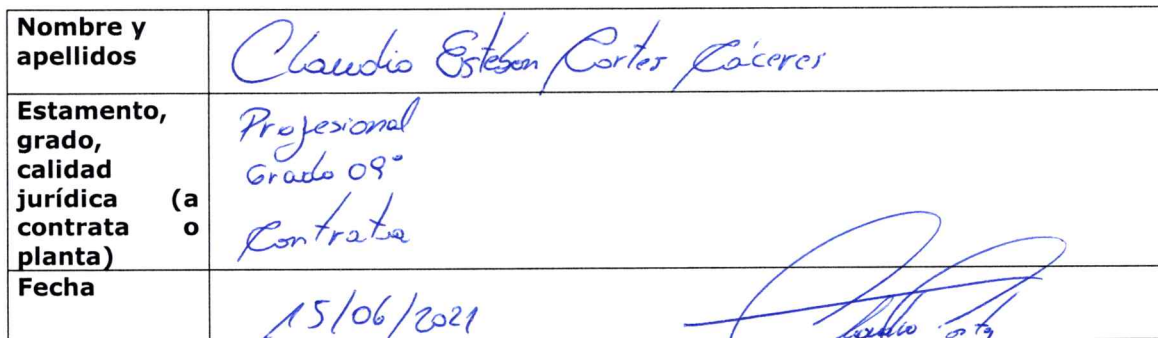 Nombre y
apellidos
Claudio Esteban Cortes Cáceres
Estamento,
grado,
calidad
jurídica (a
contrata o
planta)
Profesional
Grado 09°
Contrata
Fecha
15/06/2021